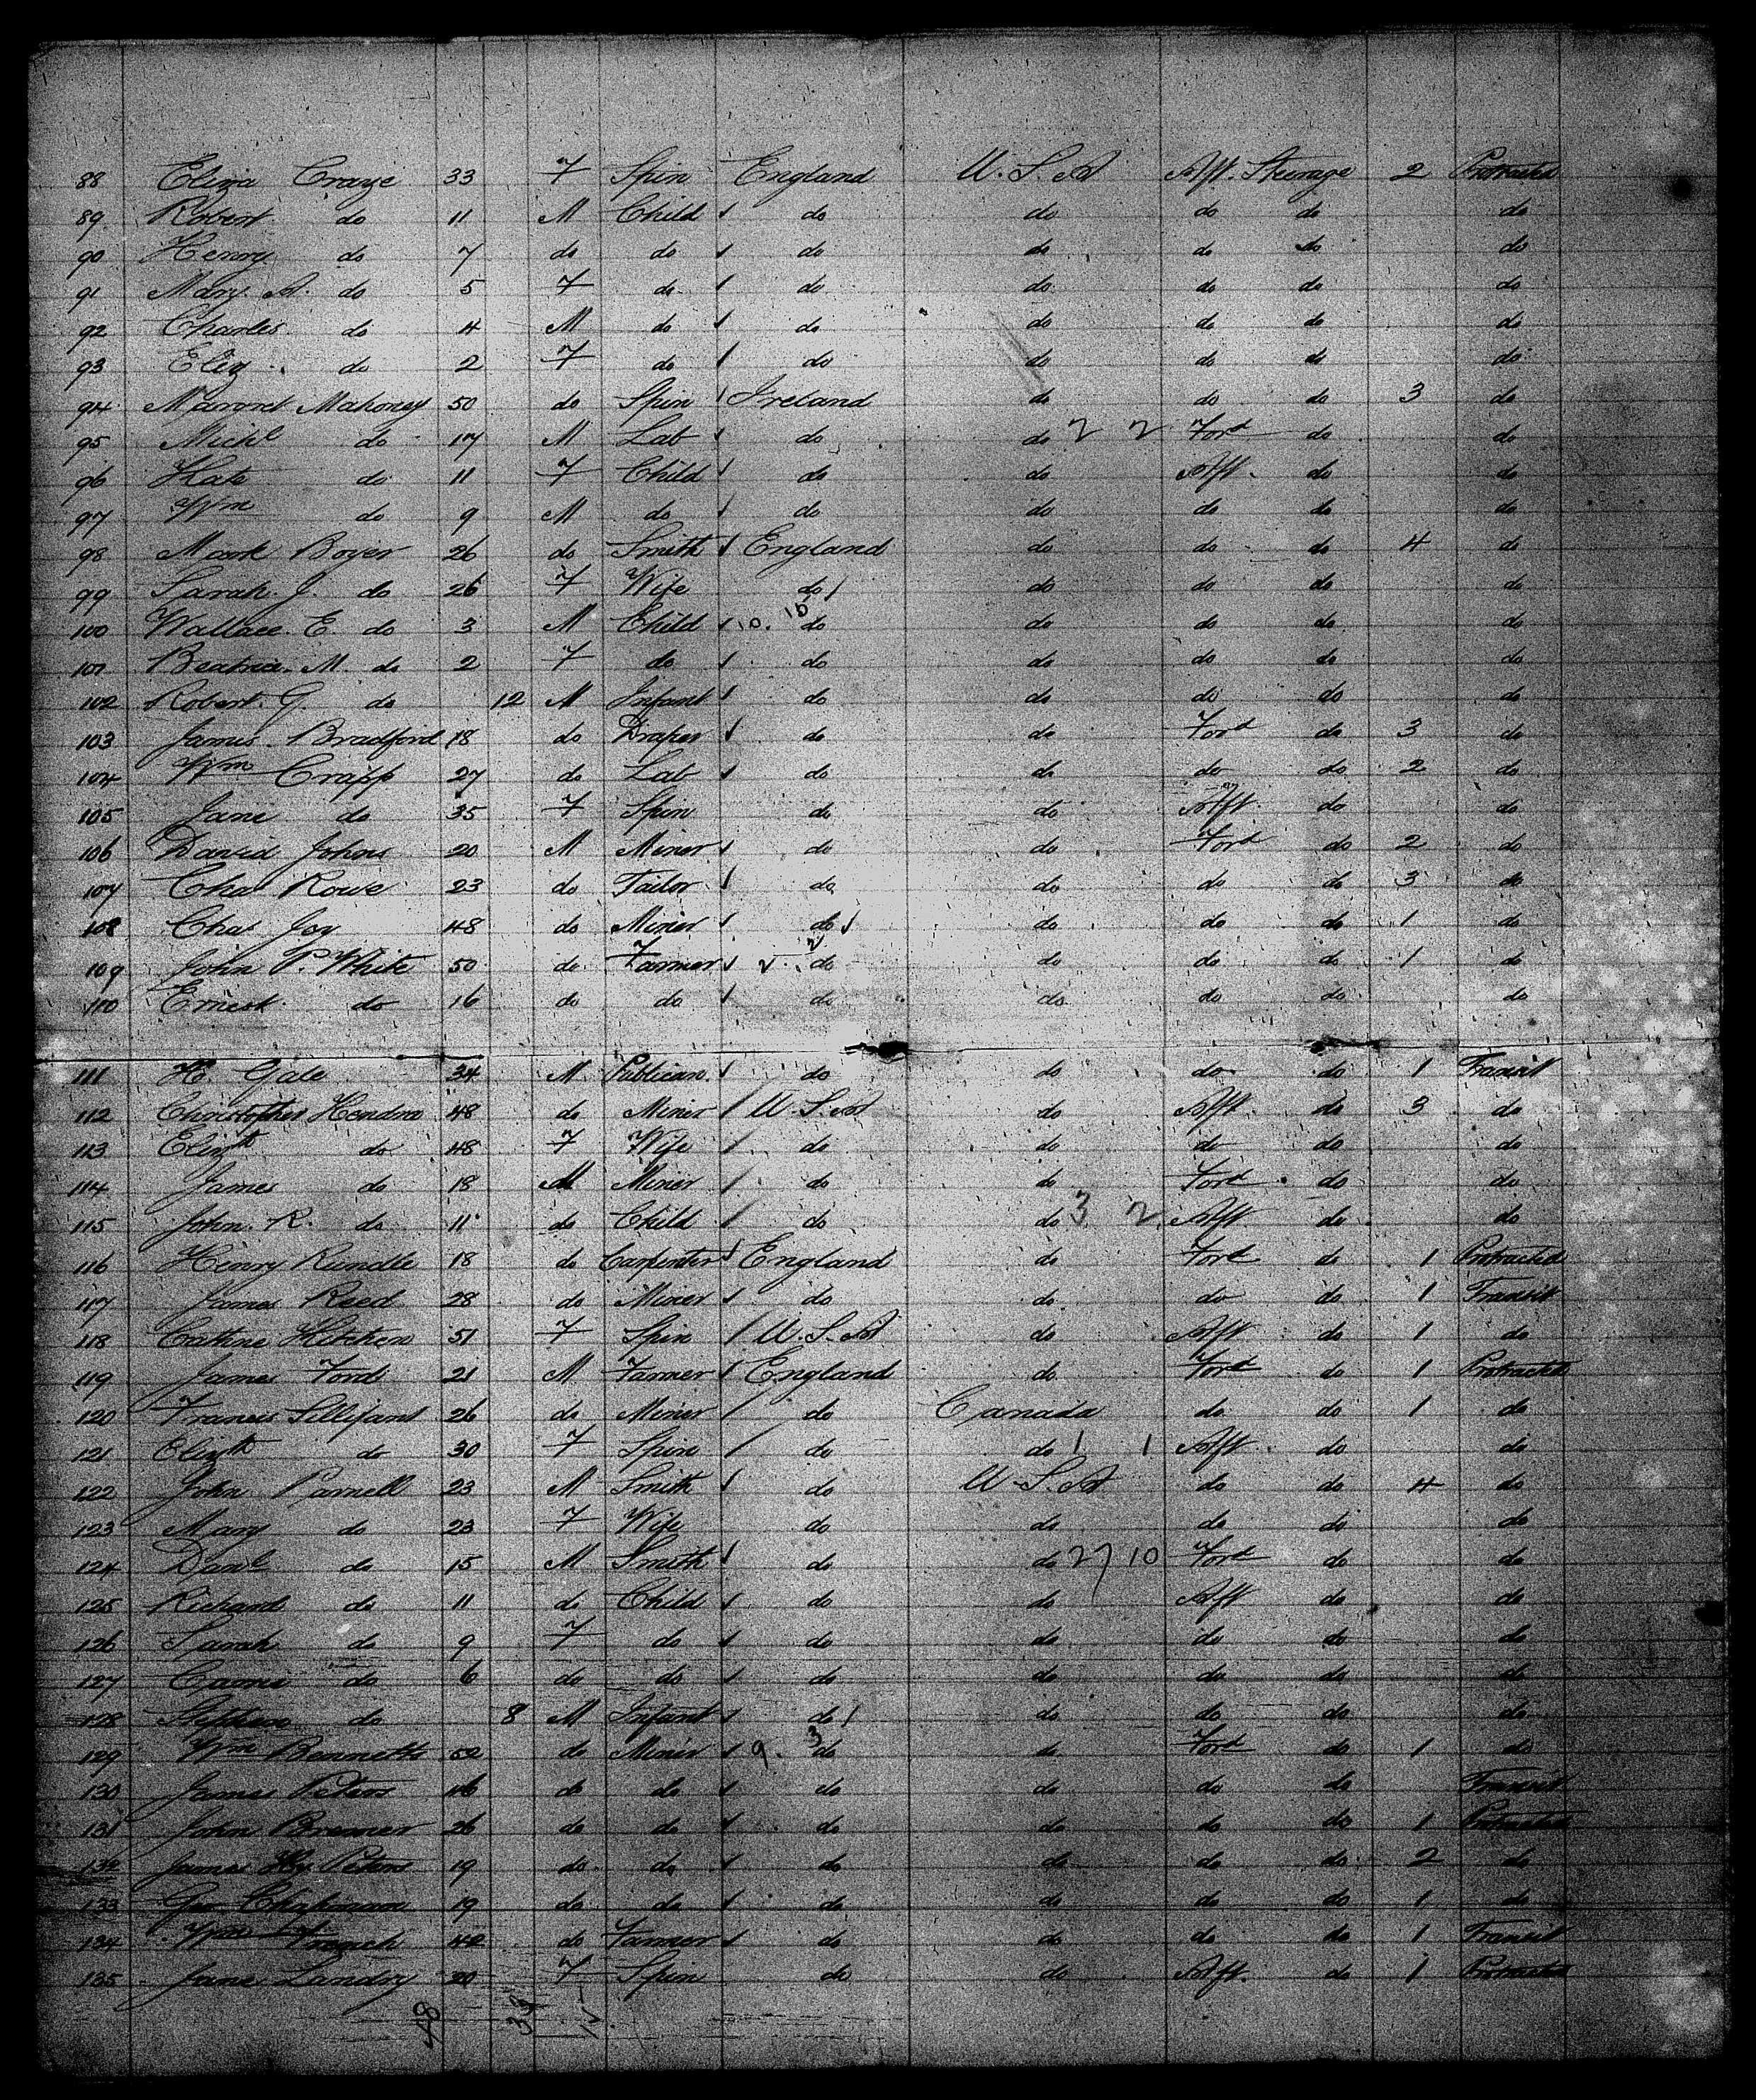 88 Eliza Craze 33 F Spin England U.S.A Aft. Steerage 2 Protracted
89 Robert do 11 M Child do do do do do
90 Henry do 7 do do do do do do do
91 Mary A. do 5 F do do do do do do
92 Charles do 4 M do do do do do do
93 Eliz do 2 F do do do do do do
94 Margret Mahoney 50 do Spin Ireland do do do 3 do
95 Michl do 17 M Lab do do 2 2 Ford do do
96 Kate do 11 F Child do do Aft do do
97 Wm do 9 M do do do do do do
98 Mark Boyer 26 do Smith England do do do 4 do
99 Sarah J. do 26 F Wife do do do do do
100 Wallace E. do 3 M Child 10. 15 do do do do do
101 Beatrice M. do 2 F do do do do do do
102 Robert G. do 12 M Infant do do do do do
103 James Bradford 18 do Draper do do Ford do 3 do
104 Wm Crapp 27 do Lab do do do do 2 do
105 Jane do 35 F Spin do do Aft do do
106 David Johns 20 M Miner do do Ford do 2 do
107 Chas Rowe 23 do Tailor do do do do 3 do
108 Chas Joy 48 do Miner do do do do 1 do
109 John P. White 50 do Farmer do do do do 1 do
110 Ernest do 16 do do do do do do do
111 H. Gale 34 M Publican do do do do 1 Transit
112 Christopher Hendra 48 do Miner U.S.A do Aft do 3 do
113 Elizth do 48 F Wife do do do do do
114 James do 18 M Miner do do Ford do do
115 John R. do 11 do Child do do 3 2 Aft do do
116 Henry Rundle 18 do Carpenter England do Ford do 1 Protracted
117 James Reed 28 do Miner do do do do 1 Transit
118 Cathne Hitchen 51 F Spin U.S.A do Aft do 1 do
119 James Ford 21 M Farmer England do Ford do 1 Protracted
120 Francis Sillifant 26 do Miner do Canada do do 1 do
121 Elizth do 30 F Spin do do 1 1 Aft do do
122 John Parnell 23 M Smith do U.S.A do do 4 do
123 Mary do 23 F Wife do do do do do
124 Danl do 15 M Smith do do 27 10 Ford do do
125 Richard do 11 do Child do do Aft do do
126 Sarah do 9 F do do do do do do
127 do 6 do do do do do do do
128 Stephen do 8 M Infant do do do do do
129 Wm Bennetts 52 do Miner 9. 3 do do Ford do 1 do
130 James Peters 46 do do do do do do Transit
131 John Bremer 26 do do do do do do 1 Protracted
132 James Hy Peters 19 do do do do do do 2 do
133 Geo 19 do do do do do do 1 do
134 Wm French 42 do Farmer do do do do 1 Transit
135 Jane Landry 20 F Spin do do Aft. do 1 Protracted
48 33 15